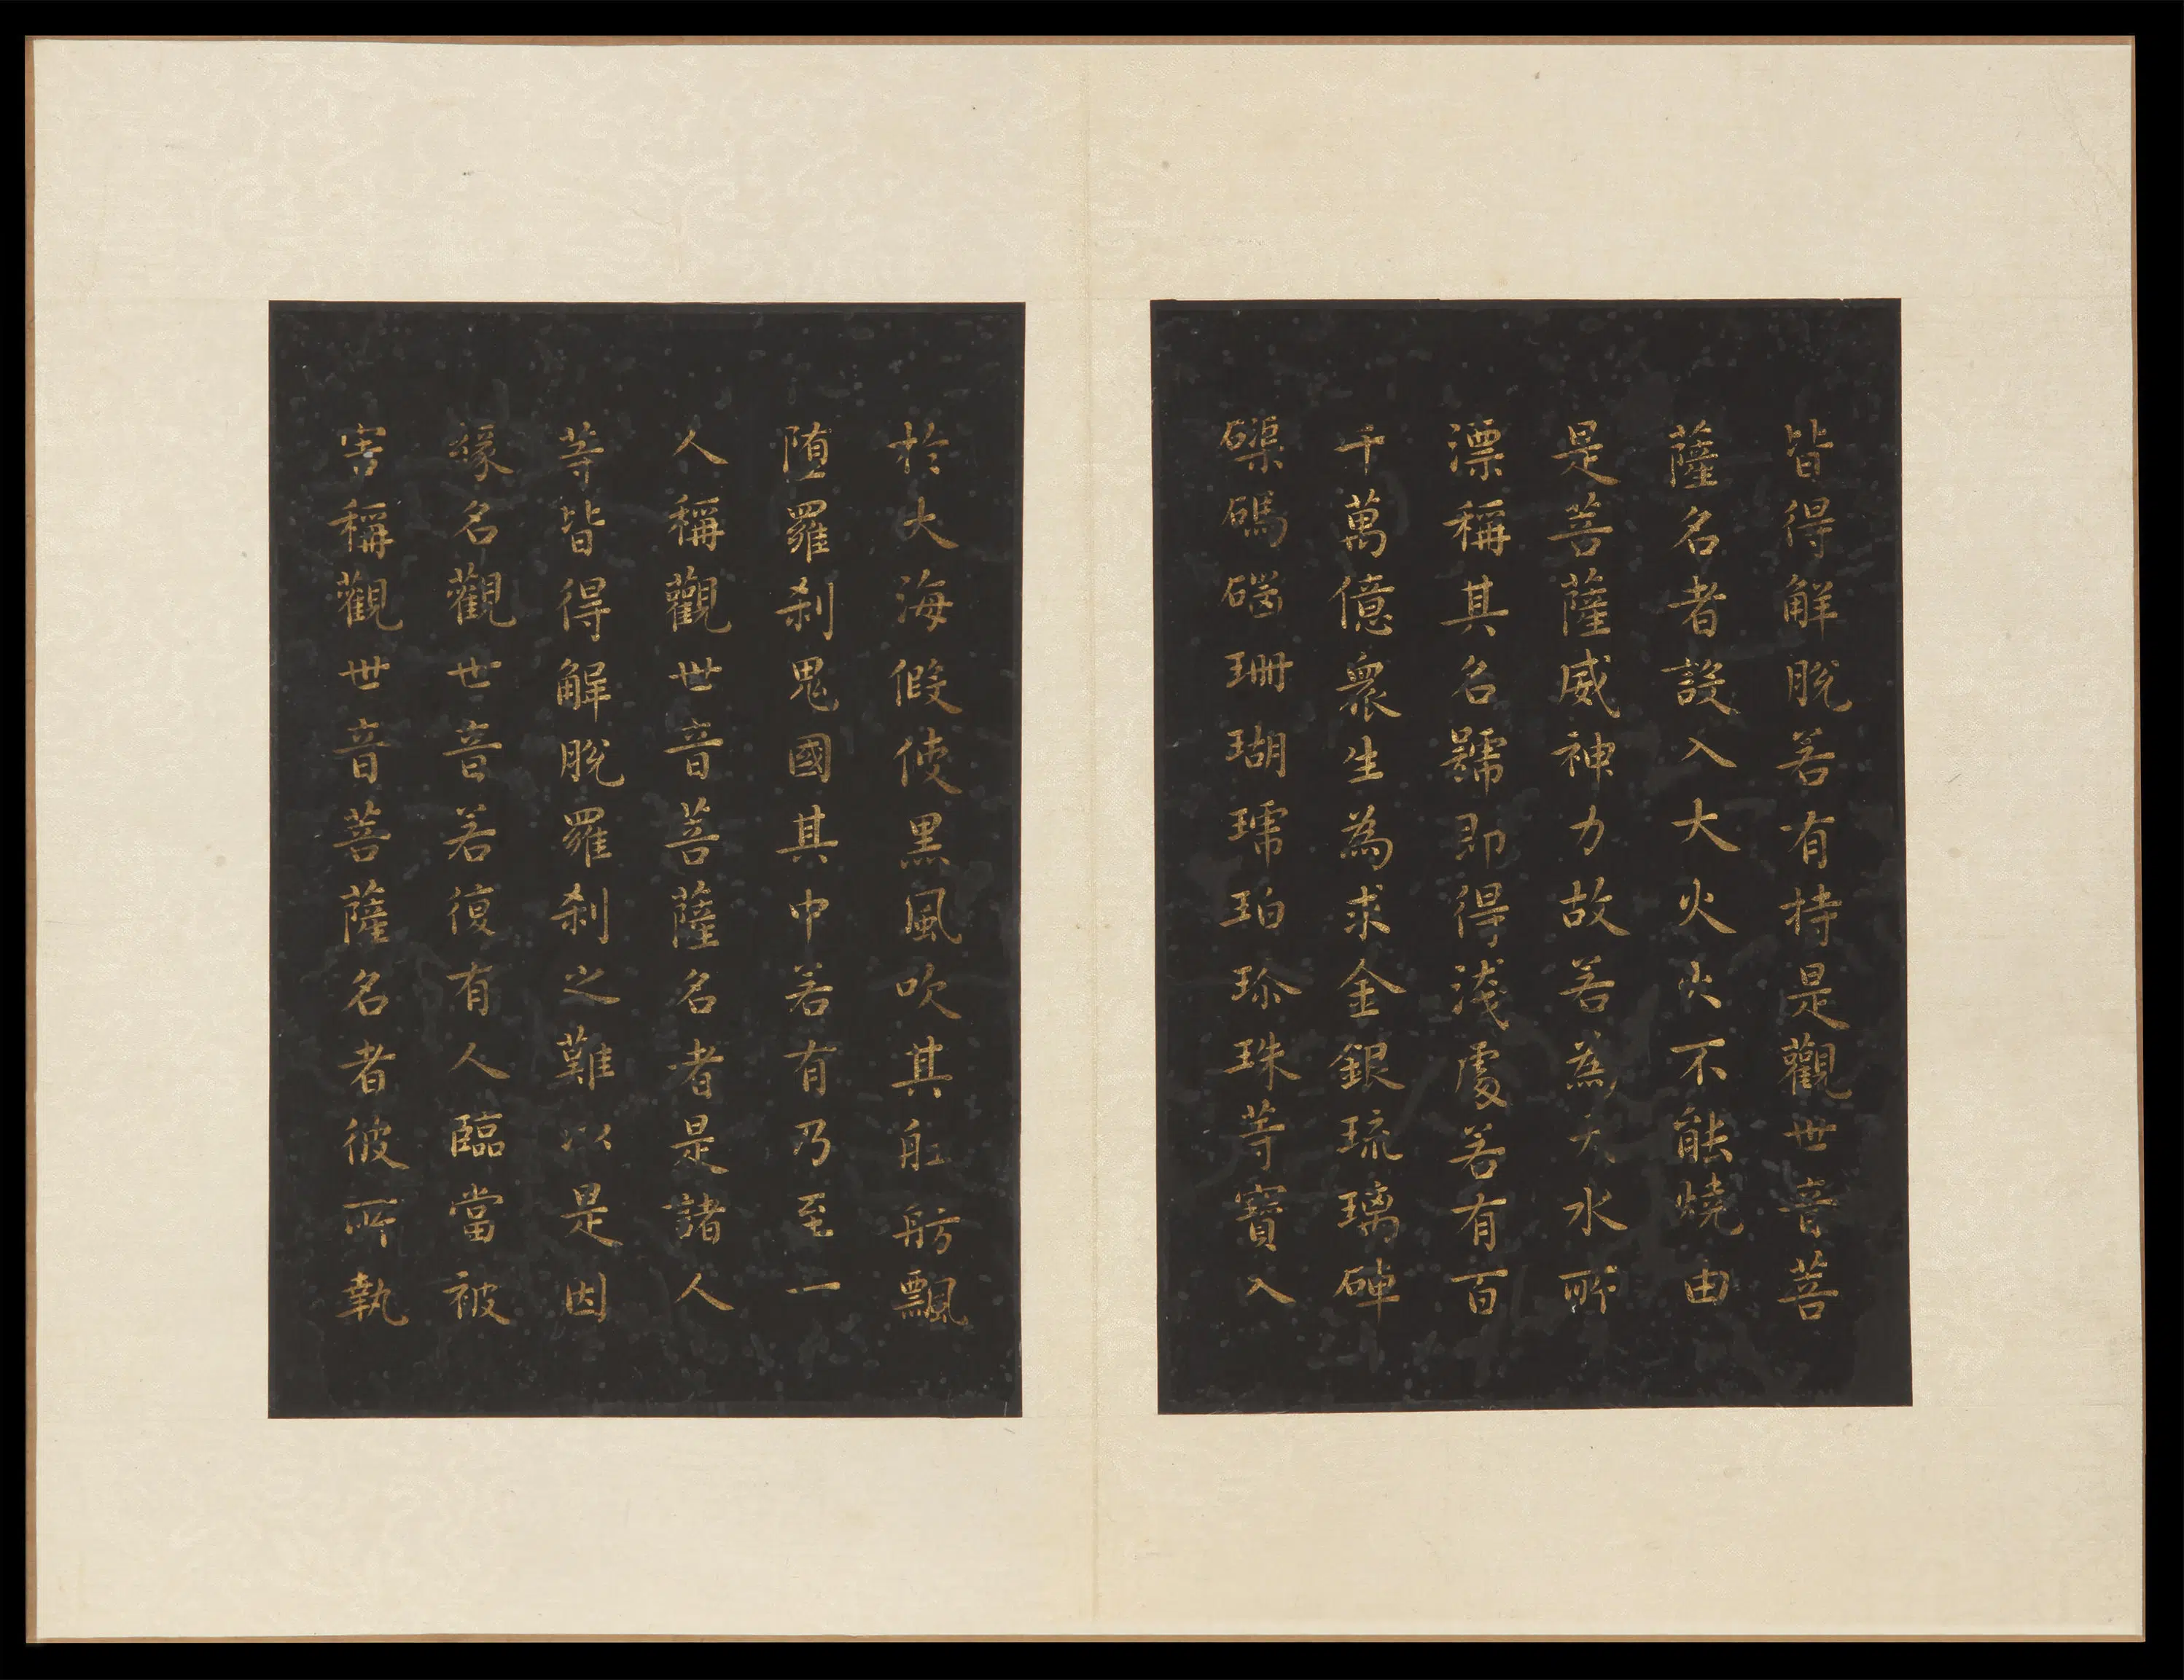 皆得解脫若有持是觀世音菩
薩名者設入大火火不能燒由
是菩薩威神力故若為大水所
漂稱其名號即得淺處若有百
千萬億衆生為求金銀琉璃硨
磲碼碯珊瑚琥珀珍珠等寶入
於大海假使黑風吹其舡舫飄
堕羅刹鬼國其中若有乃至一
人稱觀世音菩薩名者是諸人
等皆得解脫羅刹之難以是因
緣名觀世音若復有人臨當被
害稱觀世音菩薩名者彼所執